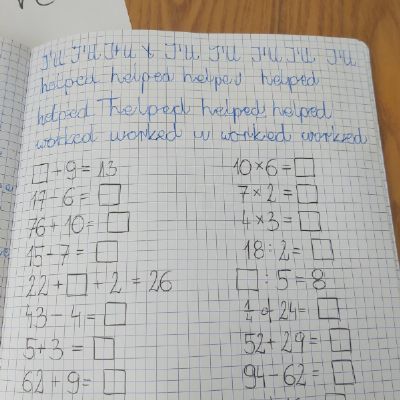 I'll I'll I'll I'll I'll I'll I'll I'll
helped helped helped helped
helped helped helped helped
worked worked w worked worked
□ + 9 = 13
17 - 6 = □
76 + 10 = □
15 - 7 = □
22 + □ + 2 = 26
43 - 4 = □
5 + 3 = □
62 + 9 = □
10 × 6 = □
7 × 2 = □
4 × 3 = □
18 : 2 = □
□ : 5 = 8
1/4 of 24 = □
52 + 29 = □
94 - 62 = □